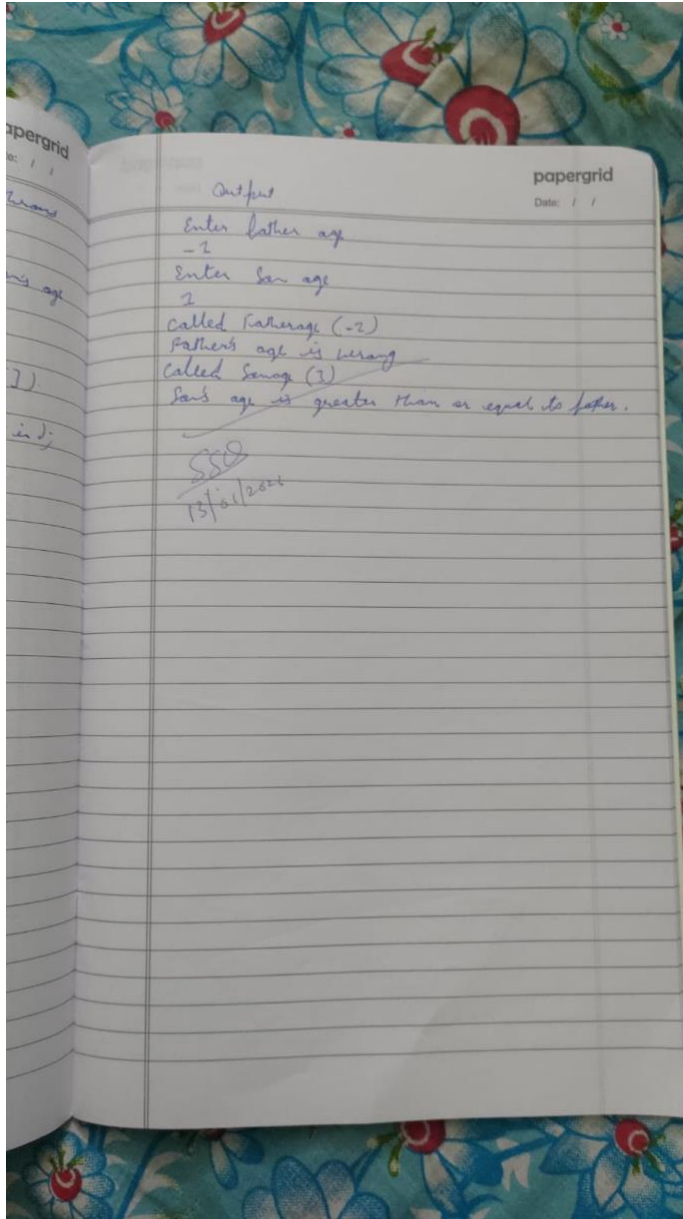 apergrid
/ /
age
papergrid
Date: / /
Output
Enter father age
-1
Enter Son age
1
Called Fatherage (-1)
Father's age is wrong
Called Sonage (1)
Son's age is greater than or equal to father.
13/01/202